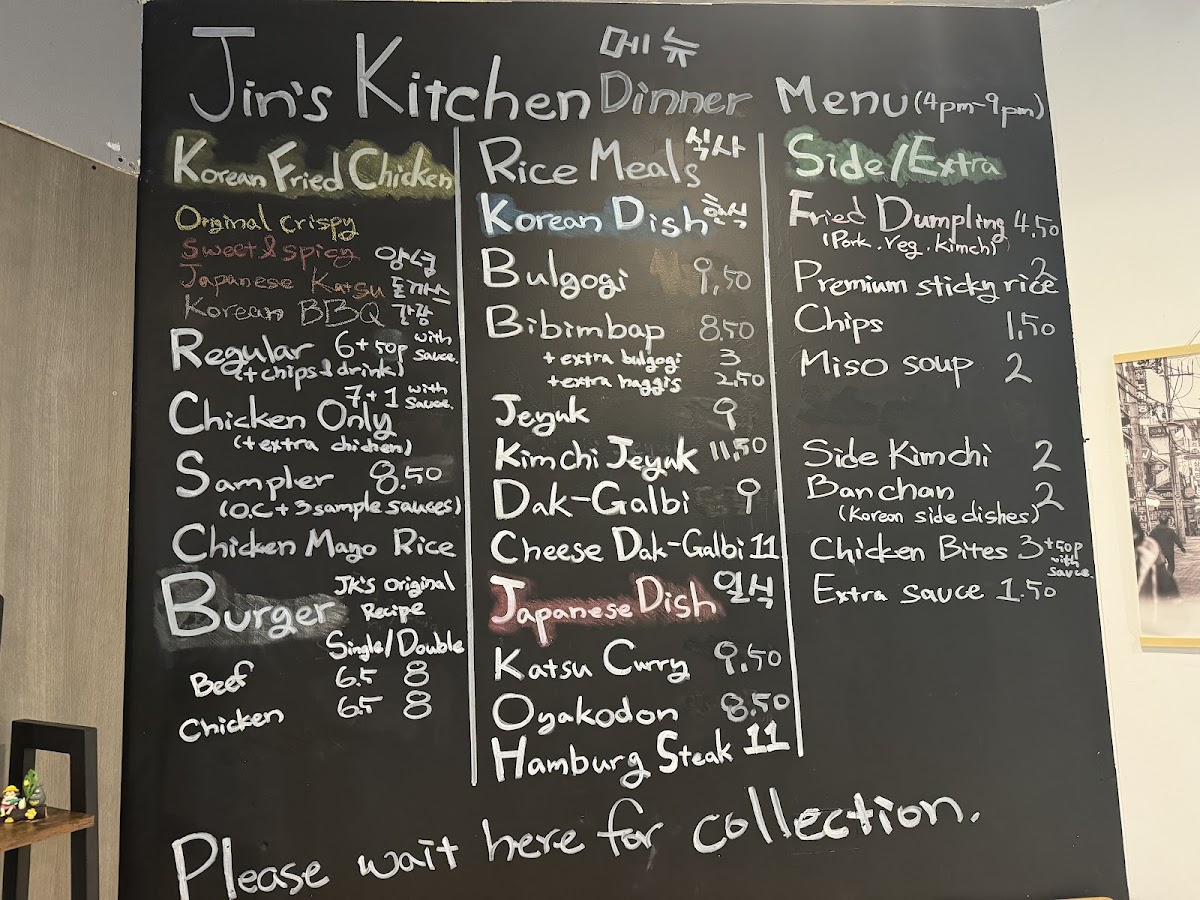 메뉴
Jin's Kitchen Dinner Menu (4pm-9pm)
Korean Fried Chicken
Orginal Crispy
Sweet & spicy 양념
Japanese Katsu 돈까스
Korean BBQ 간장
Regular 6+50p with sauce.
(+ chips & drink)
7+1 with sauce.
Chicken Only
(+ extra chichen)
Sampler 8.50
(O.C + 3 sample sauces)
Chicken Mayo Rice
Burger JK's Original Recipe
Single/Double
Beef 6.5 8
Chicken 6.5 8
Rice Meals 식사
Korean Dish 한식
Bulgogi 9.50
Bibimbap 8.50
+ extra bulgogi 3
+ extra haggis 2.50
Jeyuk 9
Kimchi Jeyuk 11.50
Dak-Galbi 9
Cheese Dak-Galbi 11
Japanese Dish 일식
Katsu Curry 9.50
Oyakodon 8.50
Hamburg Steak 11
Side/Extra
Fried Dumpling 4.50
(Pork. veg. kimchi)
Premium sticky rice 2
Chips 1.50
Miso soup 2
Side Kimchi 2
Banchan 2
(Korean side dishes)
Chicken Bites 3 +50p with sauce.
Extra sauce 1.50
Please wait here for collection.